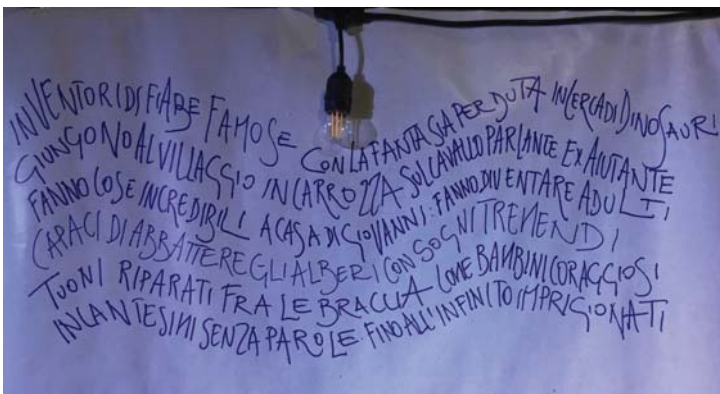 INVENTORI DI FIABE FAMOSE CON LA FANTASIA PERDUTA IN CERCA DI DINOSAURI
GIUNGONO AL VILLAGGIO IN CARROZZA SUL CAVALLO PARLANTE EX AIUTANTE
FANNO COSE INCREDIBILI A CASA DI GIOVANNI: FANNO DIVENTARE ADULTI
CAPACI DI ABBATTERE GLI ALBERI CON SOGNI TREMENDI
TUONI RIPARATI FRA LE BRACCIA COME BAMBINI CORAGGIOSI
INCANTESIMI SENZA PAROLE. FINO ALL'INFINITO IMPRIGIONATI